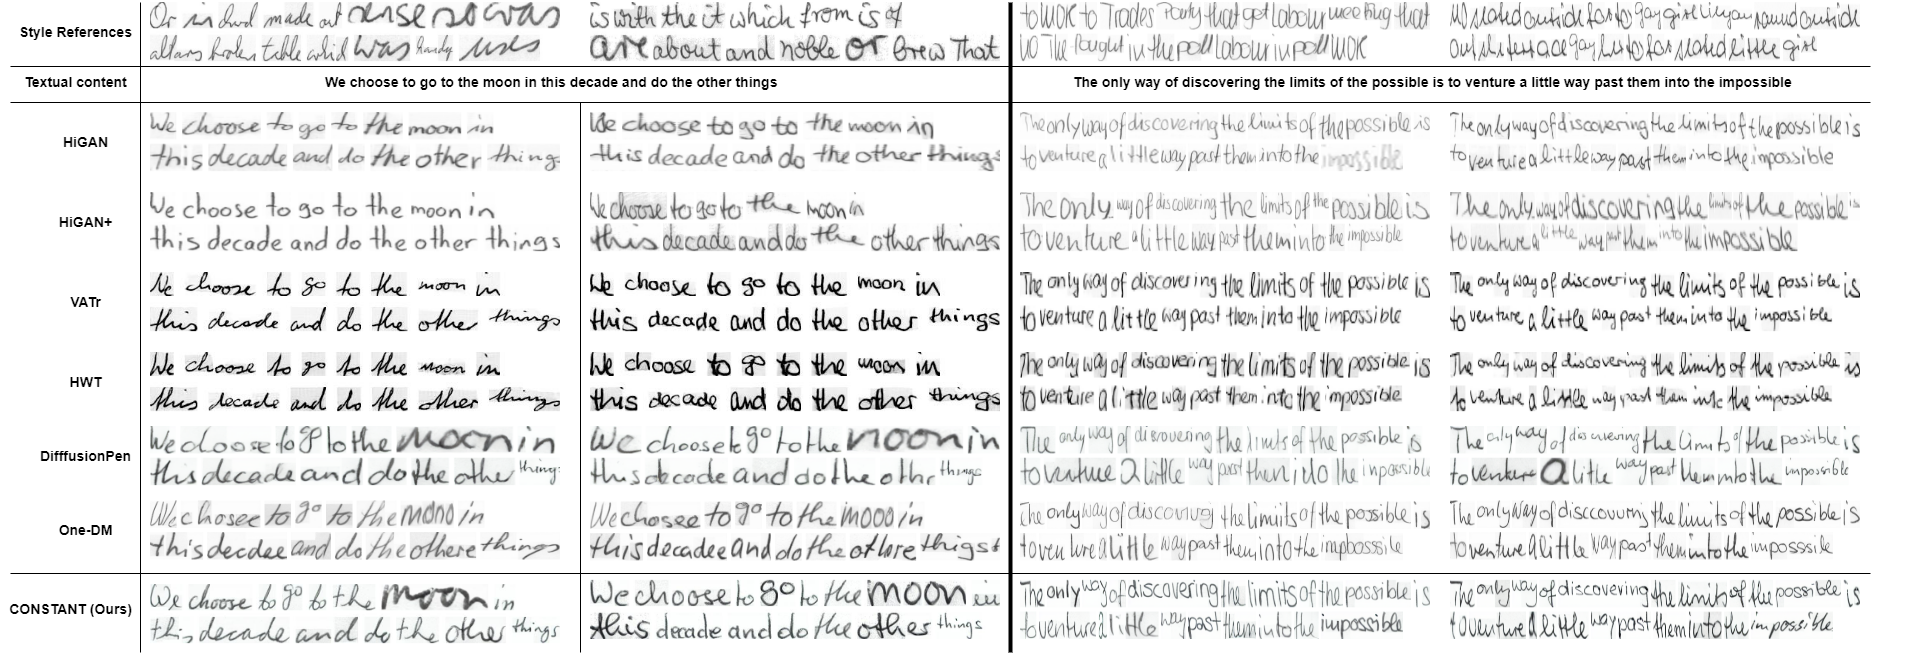 Style References
Or in made at sense so was
table was handy uses
is with the it which from is of
are about and noble or brew That
to WOK to Trades Party that get labour meeting that
The fought in the poll labour in poll WOK
seated outside for to gay girl round outside
terrace gay to for seated little girl
Textual content
We choose to go to the moon in this decade and do the other things
The only way of discovering the limits of the possible is to venture a little way past them into the impossible
HiGAN
We choose to go to the moon in
this decade and do the other thing
We choose to go to the moon in
this decade and do the other things
The only way of discovering the limits of the possible is
to venture a little way past them into the impossible
The only way of discovering the limits of the possible is
to venture a little way past them into the impossible
HiGAN+
We choose to go to the moon in
this decade and do the other things
We choose to go to the moon in
this decade and do the other things
The only way of discovering the limits of the possible is
to venture a little way past them into the impossible
The only way of discovering the limits of the possible is
to venture a little way past them into the impossible
VATr
We choose to go to the moon in
this decade and do the other things
We choose to go to the moon in
this decade and do the other things
The only way of discovering the limits of the possible is
to venture a little way past them into the impossible
The only way of discovering the limits of the possible is
to venture a little way past them into the impossible
HWT
We choose to go to the moon in
this decade and do the other things
We choose to go to the moon in
this decade and do the other things
The only way of discovering the limits of the possible is
to venture a little way past them into the impossible
The only way of discovering the limits of the possible is
to venture a little way past them into the impossible
DifffusionPen
We cloose to go to the moon in
this decade and do the othe thing
We choose to go to the noon in
this decade and do the othr things
The only way of the limits of the possible is
to venture a little way past the inpossible
The way of the limits of the possible is
to venture a litle way past them into the impossible
One-DM
We chosee to go to the in
this decdee and do the othere things
We chosee to go to the mooo in
this decadee and do the othore thigst
The only way of the limiits of the possible is
to a little way past them into the
The only way of the limits of the possible is
to venture a little way past them into the imposssile
CONSTANT (Ours)
We choose to go to the moon in
this decade and do the other things
We choose to go to the moon in
this decade and do the other things
The only way of discovering the limits of the possible is
to venture a little way past them into the impossible
The only way of discovering the limits of the possible is
to venture a little way past them into the impossible